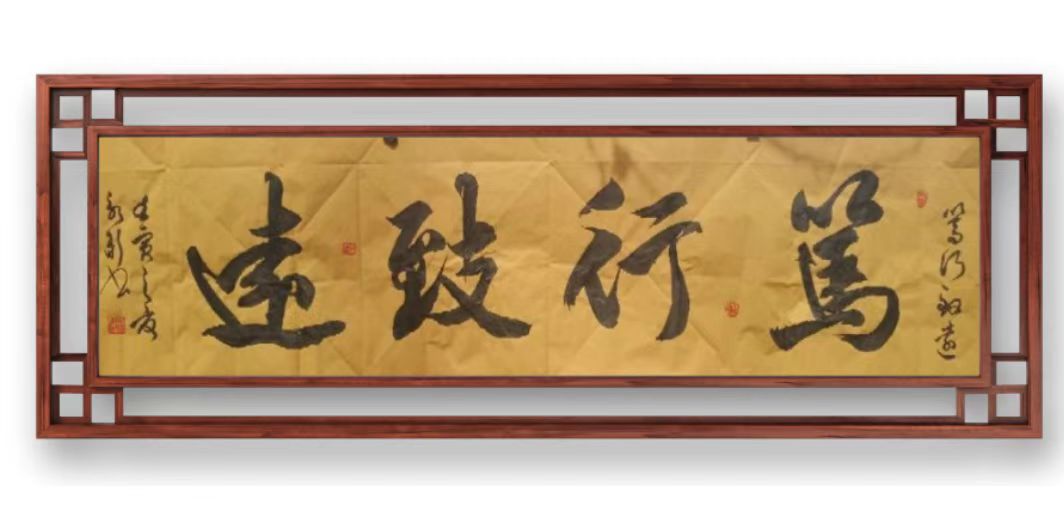 篤行致遠
篤行致遠
壬寅之夏